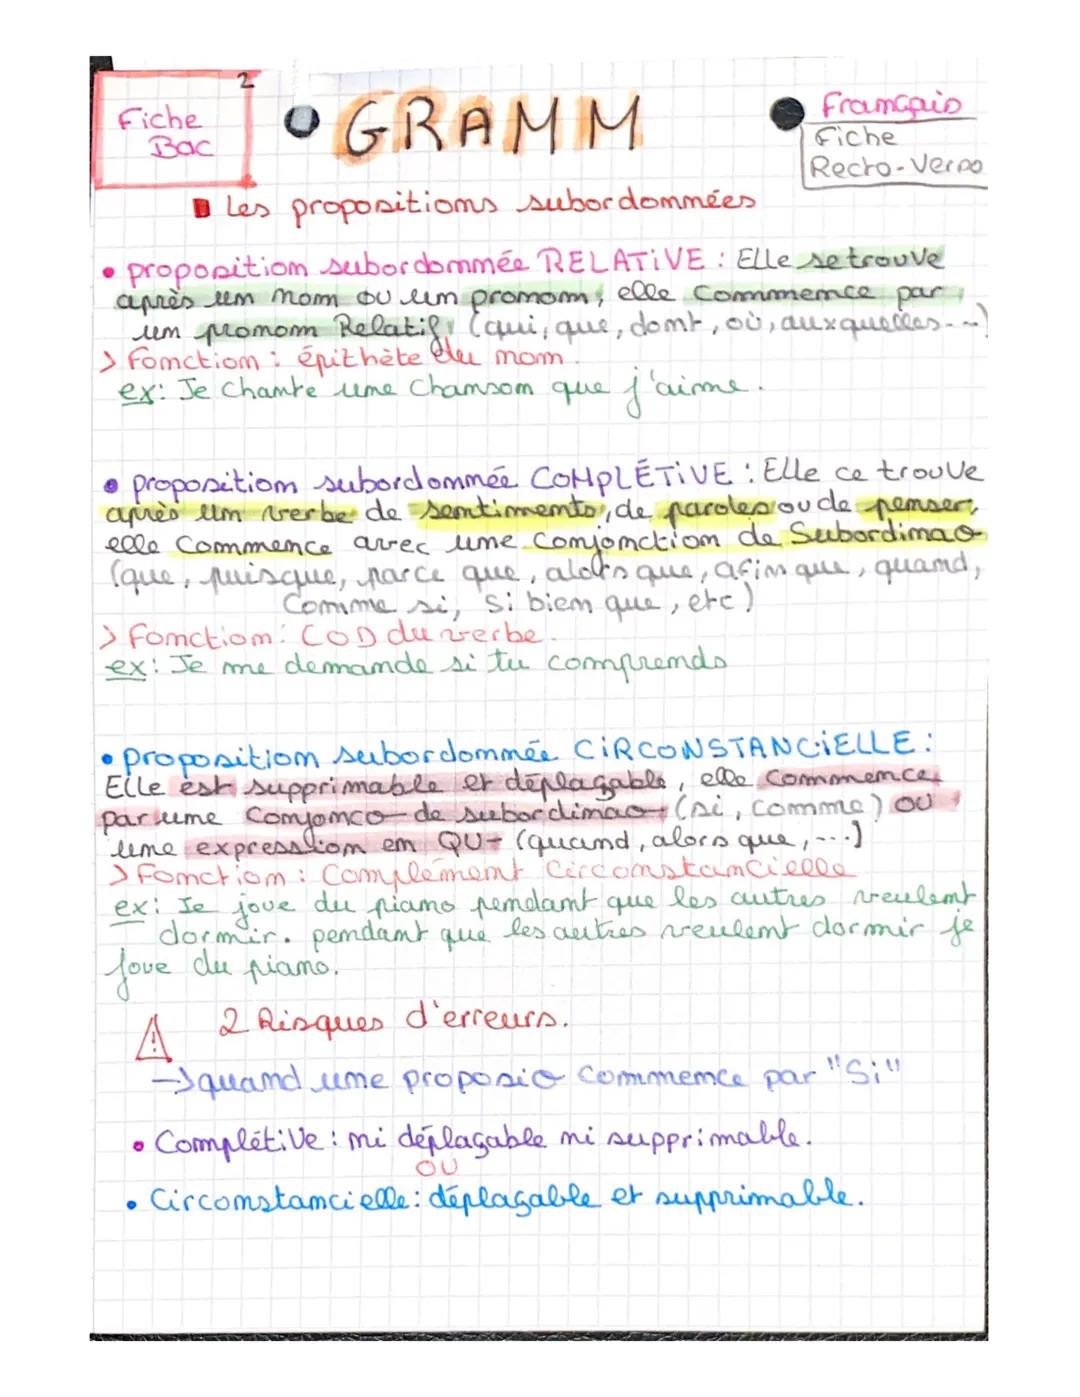 2
Fiche
Bac
GRAMM
Français
Fiche
Recto-Verso
Les propositions subordonnées
• proposition subordonnée RELATIVE : Elle se trouve
après un nom ou un pronom, elle commence par
un pronom Relatif (qui, que, dont, où, auxquelles...)
> Fonction : épithète du nom.
ex : Je chante une chanson que j'aime.
• proposition subordonnée COMPLÉTIVE : Elle ce trouve
après un verbe de sentiments, de paroles ou de penser,
elle commence avec une conjonction de Subordina°
(que, puisque, parce que, alors que, afin que, quand,
comme si, si bien que, etc)
> Fonction : COD du verbe.
ex : Je me demande si tu comprends
• proposition subordonnée CIRCONSTANCIELLE :
Elle est supprimable et déplaçable, elle commence
par une conjonc° de subordina° (si, comme) OU
une expression en QU- (quand, alors que, ...)
> Fonction : Complément Circonstancielle
ex : Je joue du piano pendant que les autres veulent
dormir. pendant que les autres veulent dormir je
joue du piano.
⚠ 2 Risques d'erreurs.
→ quand une proposi° commence par "Si"
• Complétive : ni déplaçable ni supprimable.
OU
• Circonstancielle : déplaçable et supprimable.